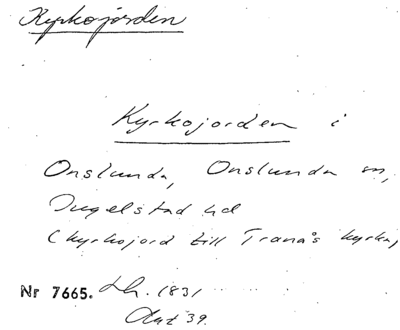 Kyrkojorden
Kyrkojorden i
Onslunda, Onslunda sn,
Ingelstad hd
(kyrkojord till Tranås kyrka)
Nr 7665. Lh. 1831
Akt 39.